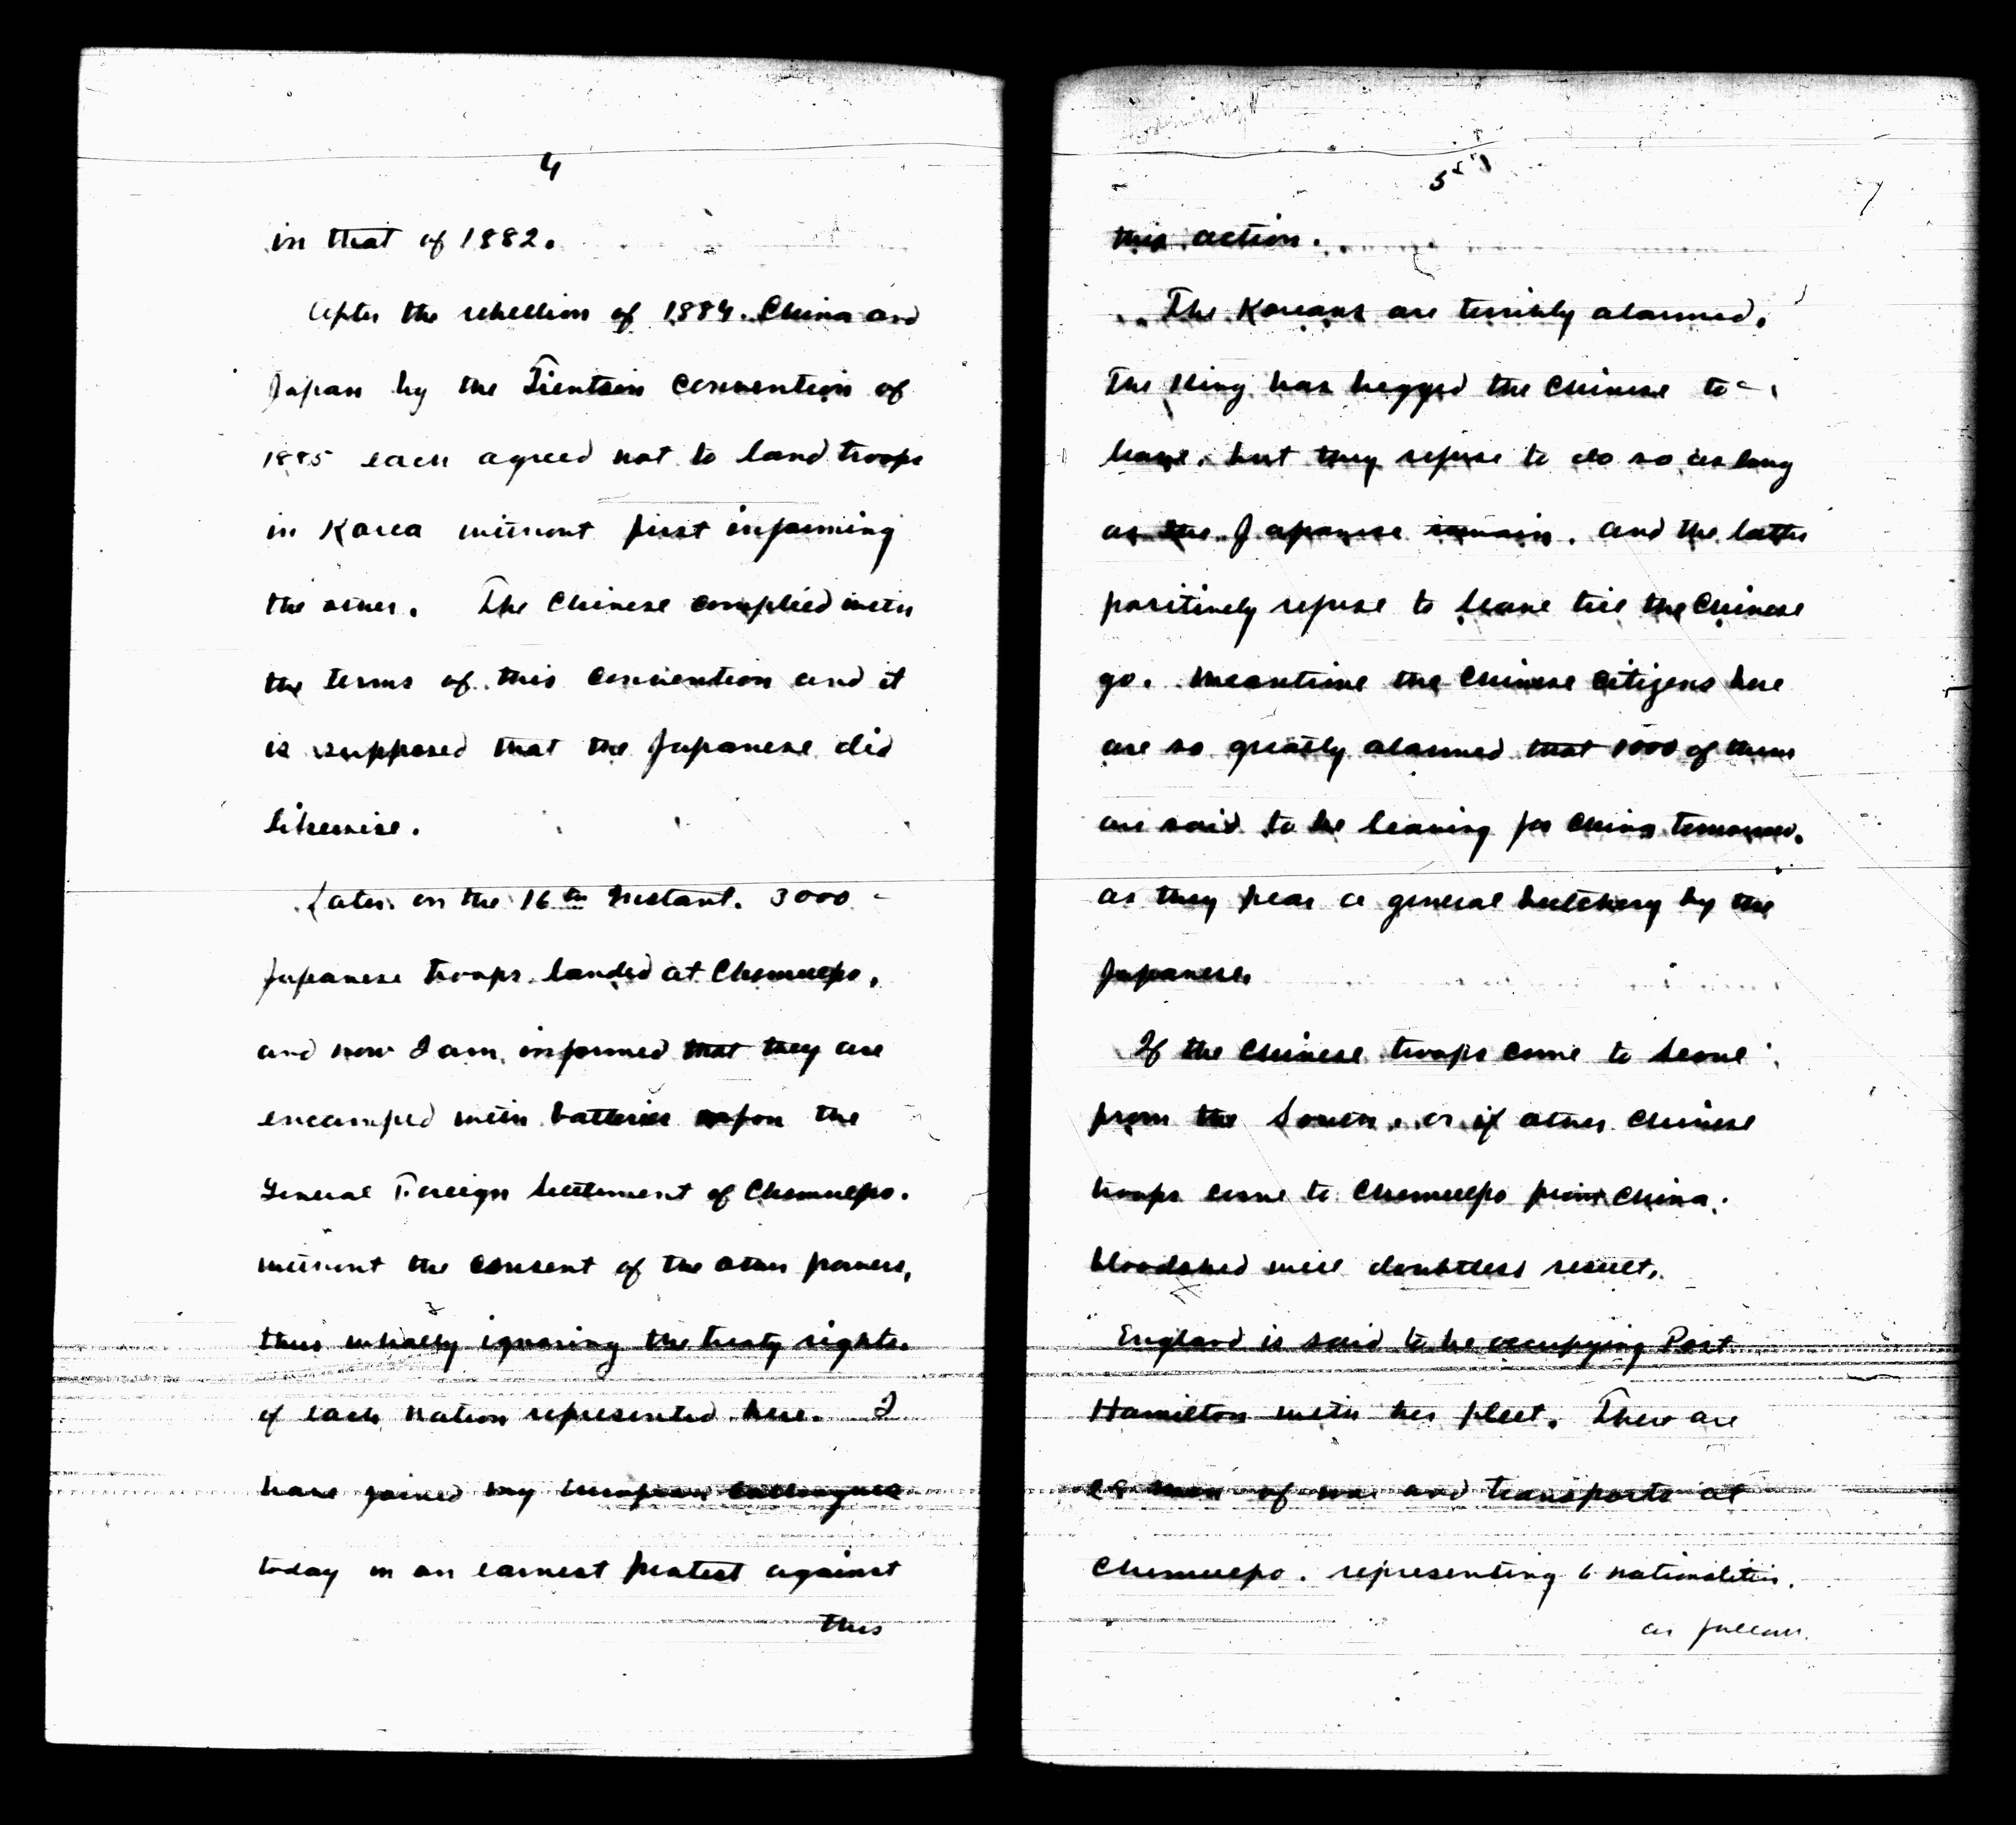 4
in that of 1882.
After the rebellion of 1884. China and
Japan by the Tientsin Convention of
1885 each agreed not to land troops
in Korea without first informing
the other. The Chinese complied with
the terms of this convention and it
is supposed that the Japanese did
likewise.
Later on the 16th Instant. 3000 -
Japanese troops landed at Chemulpo,
and now I am informed that they are
encamped with batteries upon the
General Foreign Settlement of Chemulpo.
without the consent of the other powers,
thus wholly ignoring the treaty rights.
of each nation represented here. I
have joined my European Colleagues
today in an earnest protest against
this
5
this action.
The Koreans are terribly alarmed.
The King has begged the Chinese to -
leave. but they refuse to do so as long
as the Japanese remain. and the latter
positively refuse to leave till the Chinese
go. Meantime the Chinese Citizens here
are so greatly alarmed that 1000 of them
are said to be leaving for China tomorrow.
as they fear a general butchery by the
Japanese.
If the Chinese troops come to Seoul
from the South, or if other Chinese
troops come to Chemulpo from China.
bloodshed will doubtless result.
England is said to be occupying Port
Hamilton with her fleet. There are
men of war and transports at
Chemulpo. representing 6 nationalities.
as follows.